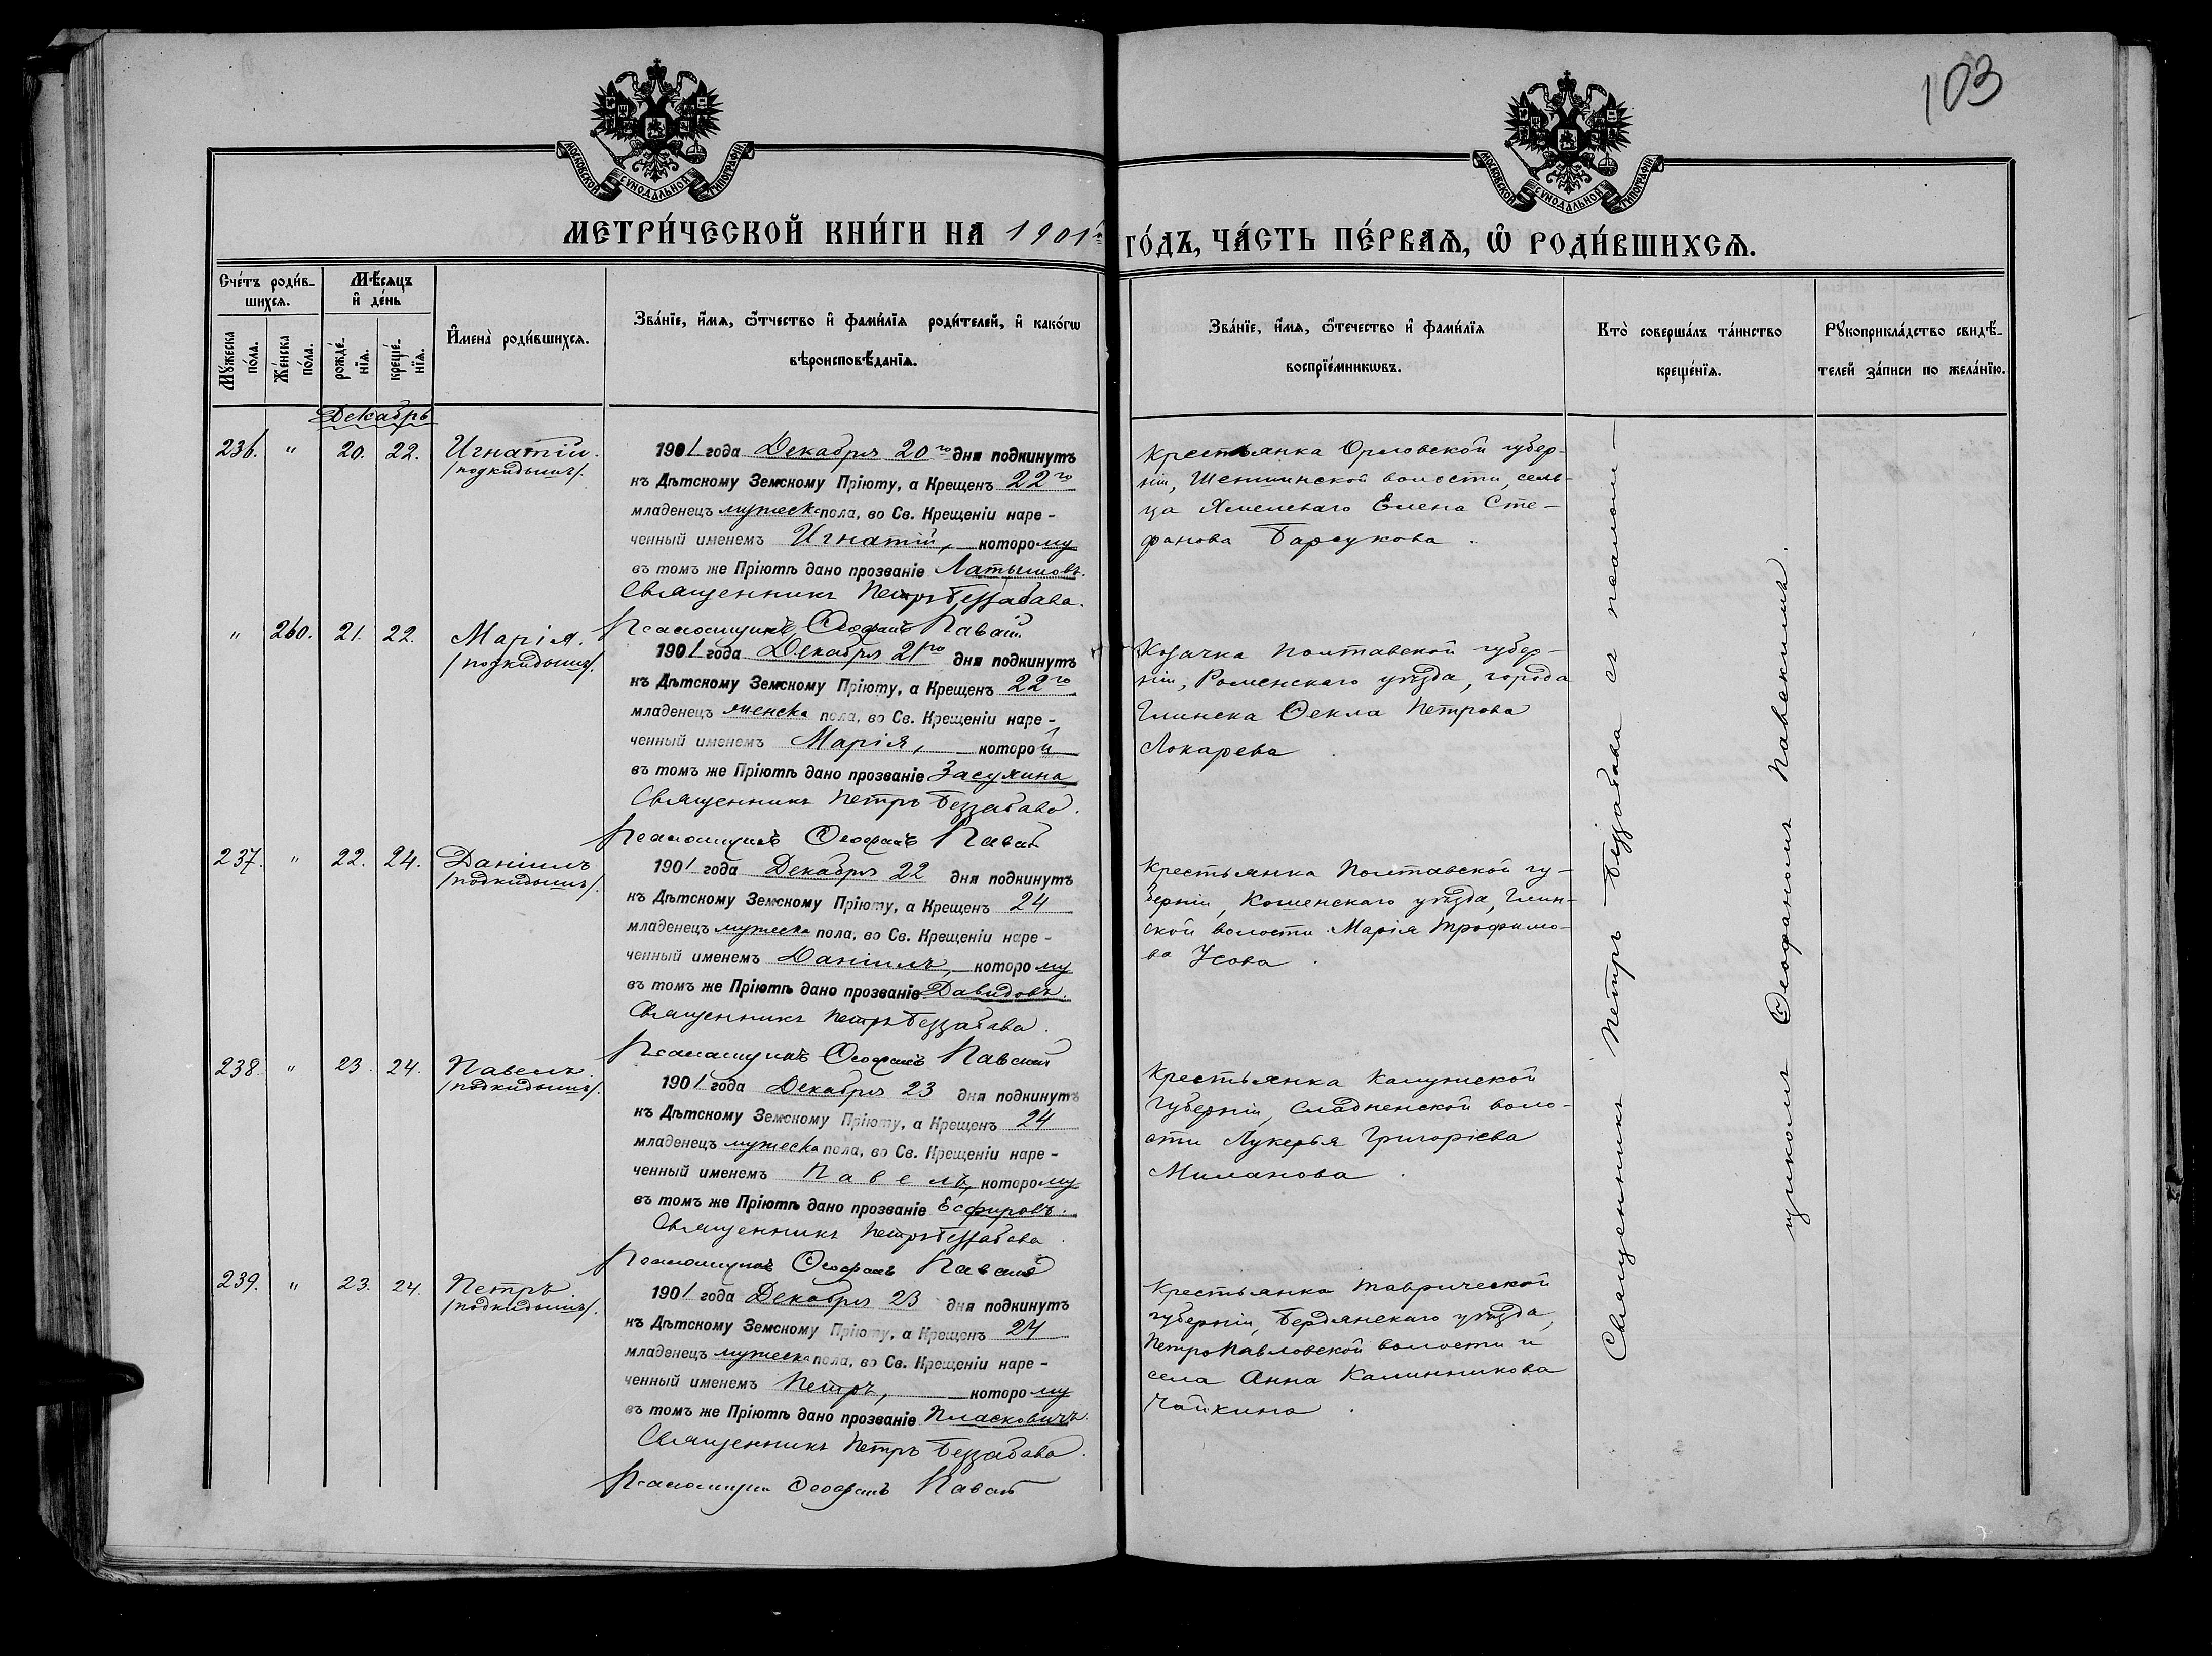 103
МОСКОВСКОЙ СУНОДАЛЬНОЙ ТИПОГРАФІИ
МОСКОВСКОЙ СУНОДАЛЬНОЙ ТИПОГРАФІИ
МЕТРИ́ЧЕСКОЙ КНИ́ГИ НА 1901й ГО́ДЪ, ЧА́СТЬ ПЕ́РВАЯ, Ѡ҆ РОДИ́ВШИХСѦ.
Сче́тъ роди́в-
шихсѧ.
Мꙋ́жеска по́ла.
Же́нска по́ла.
Мѣ́сѧцъ
и҆ де́нь
рожде́-
нїѧ.
креще́-
нїѧ.
И҆мена̀ роди́вшихсѧ.
Зва́нїе, и҆́мѧ, ѻ҆́тчество и҆ фами́лїѧ роди́телей, и҆ како́гѡ
вѣроисповѣ́данїѧ.
Зва́нїе, и҆́мѧ, ѻ҆те́чество и҆ фами́лїѧ
воспрїе́мникѡвъ.
Кто̀ соверша́лъ та́инство
креще́нїѧ.
Рꙋкоприкла́дство свидѣ́-
телей за́писи по жела́нїю.
Декабрь
236. " 20. 22. Игнатій.
/подкидышъ/.
1901 года Декабря 20го дня подкинутъ
къ Дѣтскому Земскому Пріюту, а Крещенъ 22го
младенецъ мужеска пола, во Св. Крещеніи наре-
ченный именемъ Игнатій, которому
въ томъ же Пріютѣ дано прозваніе Латышовъ.
Священникъ Петръ Беззабава.
Псаломщикъ Ѳеофанъ
Крестьянка Орловской губер-
ніи, Шеншинской волости, сель-
ца Елена Сте-
фанова Барсукова.
" 260. 21. 22. Марія.
/подкидышъ/.
1901 года Декабря 21го дня подкинутъ
къ Дѣтскому Земскому Пріюту, а Крещенъ 22го
младенецъ женска пола, во Св. Крещеніи наре-
ченный именемъ Марія, которой
въ томъ же Пріютѣ дано прозваніе Засухина
Священникъ Петръ Беззабава.
Псаломщикъ Ѳеофанъ
Козачка Полтавской губер-
ніи, Роменскаго уѣзда, города
Глинска Ѳекла Петрова
Локарева
237. " 22. 24. Даніилъ
/подкидышъ/.
1901 года Декабря 22 дня подкинутъ
къ Дѣтскому Земскому Пріюту, а Крещенъ 24
младенецъ мужеска пола, во Св. Крещеніи наре-
ченный именемъ Даніилъ, которому
въ томъ же Пріютѣ дано прозваніе Давидовъ.
Священникъ Петръ Беззабава.
Псаломщикъ Ѳеофанъ Павскій
Крестьянка Полтавской гу-
берніи, уѣзда, Глин-
ской волости Марія Трофимо-
ва Усова.
238. " 23. 24. Павелъ.
/подкидышъ/.
1901 года Декабря 23 дня подкинутъ
къ Дѣтскому Земскому Пріюту, а Крещенъ 24
младенецъ мужеска пола, во Св. Крещеніи наре-
ченный именемъ Павелъ, которому
въ томъ же Пріютѣ дано прозваніе Есфировъ.
Священникъ Петръ Беззабава.
Псаломщикъ Ѳеофанъ Павскій
Крестьянка Калужской
губерніи, воло-
сти Лукерья Григоріева
Миланова.
239. " 23. 24. Петръ.
/подкидышъ/.
1901 года Декабря 23 дня подкинутъ
къ Дѣтскому Земскому Пріюту, а Крещенъ 24
младенецъ мужеска пола, во Св. Крещеніи наре-
ченный именемъ Петръ, которому
въ томъ же Пріютѣ дано прозваніе Пласковичъ
Священникъ Петръ Беззабава.
Псаломщикъ Ѳеофанъ
Крестьянка Таврической
губерніи, Бердянскаго уѣзда,
Петропавловской волости и
села Анна Калинникова
Чайкина.
Священникъ Петръ Беззабава съ псалом-
щикомъ Ѳеофаномъ Павскимъ.